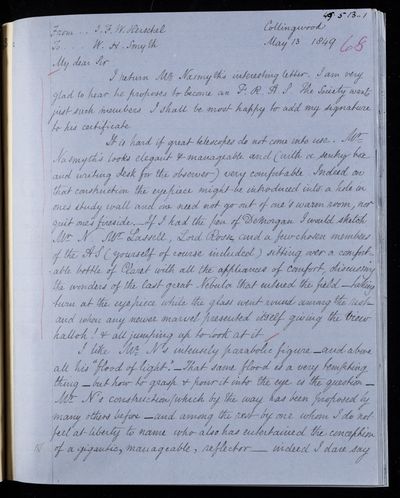 49 5 13..1
From .. J. F. W. Herschel Collingwood
To ... W. H. Smyth May 13 1849 68
My dear Sir
I return Mr Nasmyth's interesting letter. I am very
glad to hear he proposes to become an F. R. A. S. The Society wants
just such members I shall be most happy to add my signature
to his certificate
It is hard if great telescopes do not come into use. Mr
Nasmyth's looks elegant & manageable and (with a sentry box
and writing desk for the observer) very comfortable. Indeed on
that construction the eyepiece might be introduced into a hole in
ones study wall and one need not go out of one's warm room, nor
quit ones fireside.— If I had the pen of DeMorgan I would sketch
Mr N. Mr Lassell, Lord Rosse and a few chosen members
of the A S (yourself of course included) sitting over a comfort-
able bottle of Claret with all the appliances of comfort, discussing
the wonders of the last great Nebula that entered the field — taking
turn at the eyepiece while the glass went round among the rest
and when any newer marvel presented itself giving the view
halloh! & all jumping up to look at it
I like Mr N's intensely parabolic figure — and above
all his "flood of light".— That same flood is a very tempting
thing — but how to grasp & pour it into the eye is the question —
Mr N's construction (which by the way has been proposed by
many others before — and among the rest by one whom I do not
feel at liberty to name who also has entertained the conception
of a gigantic, manageable, reflector — indeed I dare say